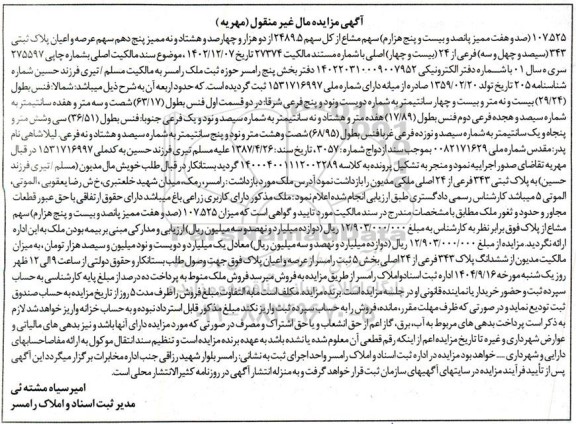 آگهی مزایده مال غیر منقول (مهریه)
۱۰۷.۵۲۵ (صد و هفت ممیز پانصد و بیست و پنج هزارم) سهم مشاع از کل سهم ۲۴۸۹.۵ از دو هزار و چهارصد و هشتاد و نه ممیز پنج دهم سهم عرصه و اعیان پلاک ثبتی
۳۴۳ (سیصد و چهل و سه) فرعی از ۲۴ (بیست و چهار) اصلی با شماره مستند مالکیت ۲۷۳۷۴ تاریخ ۱۴۰۲/۱۲/۰۷، موضوع سند مالکیت اصلی بشماره چاپی ۳۷۵۵۹۷
سری ه سال ۰۱ با شماره دفتر الکترونیکی ۱۴۰۲۲۰۳۱۰۰۰۹۰۰۷۹۵۲ دفتر بخش پنج رامسر حوزه ثبت ملک رامسر به مالکیت مسلم / تیری فرزند حسین شماره
شناسنامه ۲۰۵ تاریخ تولد ۱۳۵۹/۰۲/۲۰ صادره از میانه دارای شماره ملی ۱۵۳۱۷۱۶۹۹۷ ثبت گردیده است. که حدود اربعه آن به شرح ذیل میباشد: شمالا: فنس بطول
(۲۹/۲۴) بیست و نه متر و بیست و چهار سانتیمتر به شماره دویست و نود و پنج فرعی شرقا: در دو قسمت اول فنس بطول (۶۳/۱۷) شصت و سه متر و هفده سانتیمتر به
شماره سیصد و هجده فرعی دوم فنس بطول (۱۷/۸۹) هفده متر و هشتاد و نه سانتیمتر به شماره سیصد و نود و یک فرعی جنوبا: فنس بطول (۳۶/۵۱) سی و شش متر و
پنجاه و یک سانتیمتر به شماره سیصد و نوزده فرعی غربا: فنس بطول (۶۸/۹۵) شصت و هشت و نود و پنج سانتیمتر به شماره سیصد و هشتاد و نه فرعی. لیلا شاهی نام
پدر: مقدس شماره ملی ۰۰۸۲۱۷۱۶۲۹ بموجب سند ازدواج شماره: ۳۰۵۷، تاریخ: ۱۳۸۷/۴/۲۶ علیه مسلم تیری فرزند حسین به کدملی ۱۵۳۱۷۱۶۹۹۷ در قبال
مهریه تقاضای صدور اجراییه نمود و منجر به تشکیل پرونده به کلاسه ۱۴۰۰۰۴۰۰۱۱۱۲۰۰۲۲۸۹ گردید بستانکار در قبال طلب خویش مال مدیون (مسلم / تیری فرزند
حسین) به پلاک ثبتی ۳۴۳ فرعی از ۲۴ اصلی ملکی مدیون را بازداشت نمود آدرس ملک مورد بازداشت: رامسر، رمک، میدان شهید خلعتبری، خ ش رضا یعقوبی، المونی،
المونی ۵ میباشد کارشناس رسمی دادگستری طبق ارزیابی انجام شده اعلام نمود: ملک مذکور دارای کاربری زراعی باغ میباشد دارای حقوق ارتفاقی با حق عبور قطعات
مجاور و حدود و ثغور ملک مطابق با مشخصات مندرج در سند مالکیت مورد تایید و گواهی است که میزان ۱۰۷.۵۲۵ (صد و هفت ممیز پانصد و بیست و پنج هزارم) سهم
مشاع از پلاک فوق برابر نظر به کارشناس به مبلغ ۱۲/۹۰۳/۰۰۰/۰۰۰ ریال (دوازده میلیارد و نهصد و سه میلیون ریال) ارزیابی و مدارکی مبنی بر بیمه بودن ملک به این اداره
ارائه نگردید. مزایده از مبلغ ۱۲/۹۰۳/۰۰۰/۰۰۰ ریال (دوازده میلیارد و نهصد و سه میلیون ریال) معادل یک میلیارد و دویست و نود میلیون و سیصد هزار تومان، به میزان
مالکیت مدیون از ششدانگ پلاک ۳۴۳ فرعی از ۲۴ اصلی بخش ۵ ثبت رامسر از عرصه و اعیان پلاک فوق جهت وصول طلب بستانکار و حقوق دولتی از ساعت ۹ الی ۱۲ ظهر
روز یک شنبه مورخه ۱۴۰۴/۹/۱۶ اداره ثبت اسناد و املاک رامسر از طریق مزایده به فروش میرسد فروش ملک منوط به پرداخت ده درصد از مبلغ پایه کارشناسی به حساب
سپرده ثبت و حضور خریدار یا نماینده قانونی او در جلسه مزایده است. برنده مزایده مکلف است مابه التفاوت مبلغ فروش را ظرف مدت ۵ روز از تاریخ مزایده به حساب صندوق
ثبت تودیع نماید و در صورتی که ظرف مهلت مقرر، مانده فروش را به حساب سپرده ثبت تودیع نکند، مبلغ مذکور قابل استرداد نبوده و به حساب خزانه واریز خواهد شد لازم
به ذکر است پرداخت بدهی های مربوط به آب، برق، گاز اعم از حق انشعاب و یا حق اشتراک و مصرف در صورتی که مورد مزایده دارای آنها باشد و نیز بدهی های مالیاتی و
عوارض شهرداری و غیره تا تاریخ مزایده اعم از اینکه رقم قطعی آن معلوم شده یا نشده باشد به عهده برنده مزایده است و تنظیم سند انتقال موکول به ارائه مفاصاحسابهای
دارایی و شهرداری .... خواهد بود مزایده در اداره ثبت اسناد و املاک رامسر واحد اجرای ثبت به نشانی: رامسر بلوار شهید رزاقی جنب اداره مخابرات برگزار میگردد این آگهی
پس از تأیید فرآیند مزایده در سایتهای آگهیهای سازمان ثبت قرار خواهد گرفت و به منزله انتشار آگهی در روزنامه کثیرالانتشار محلی است.
امیر سیاه مشته ئی
مدیر ثبت اسناد و املاک رامسر